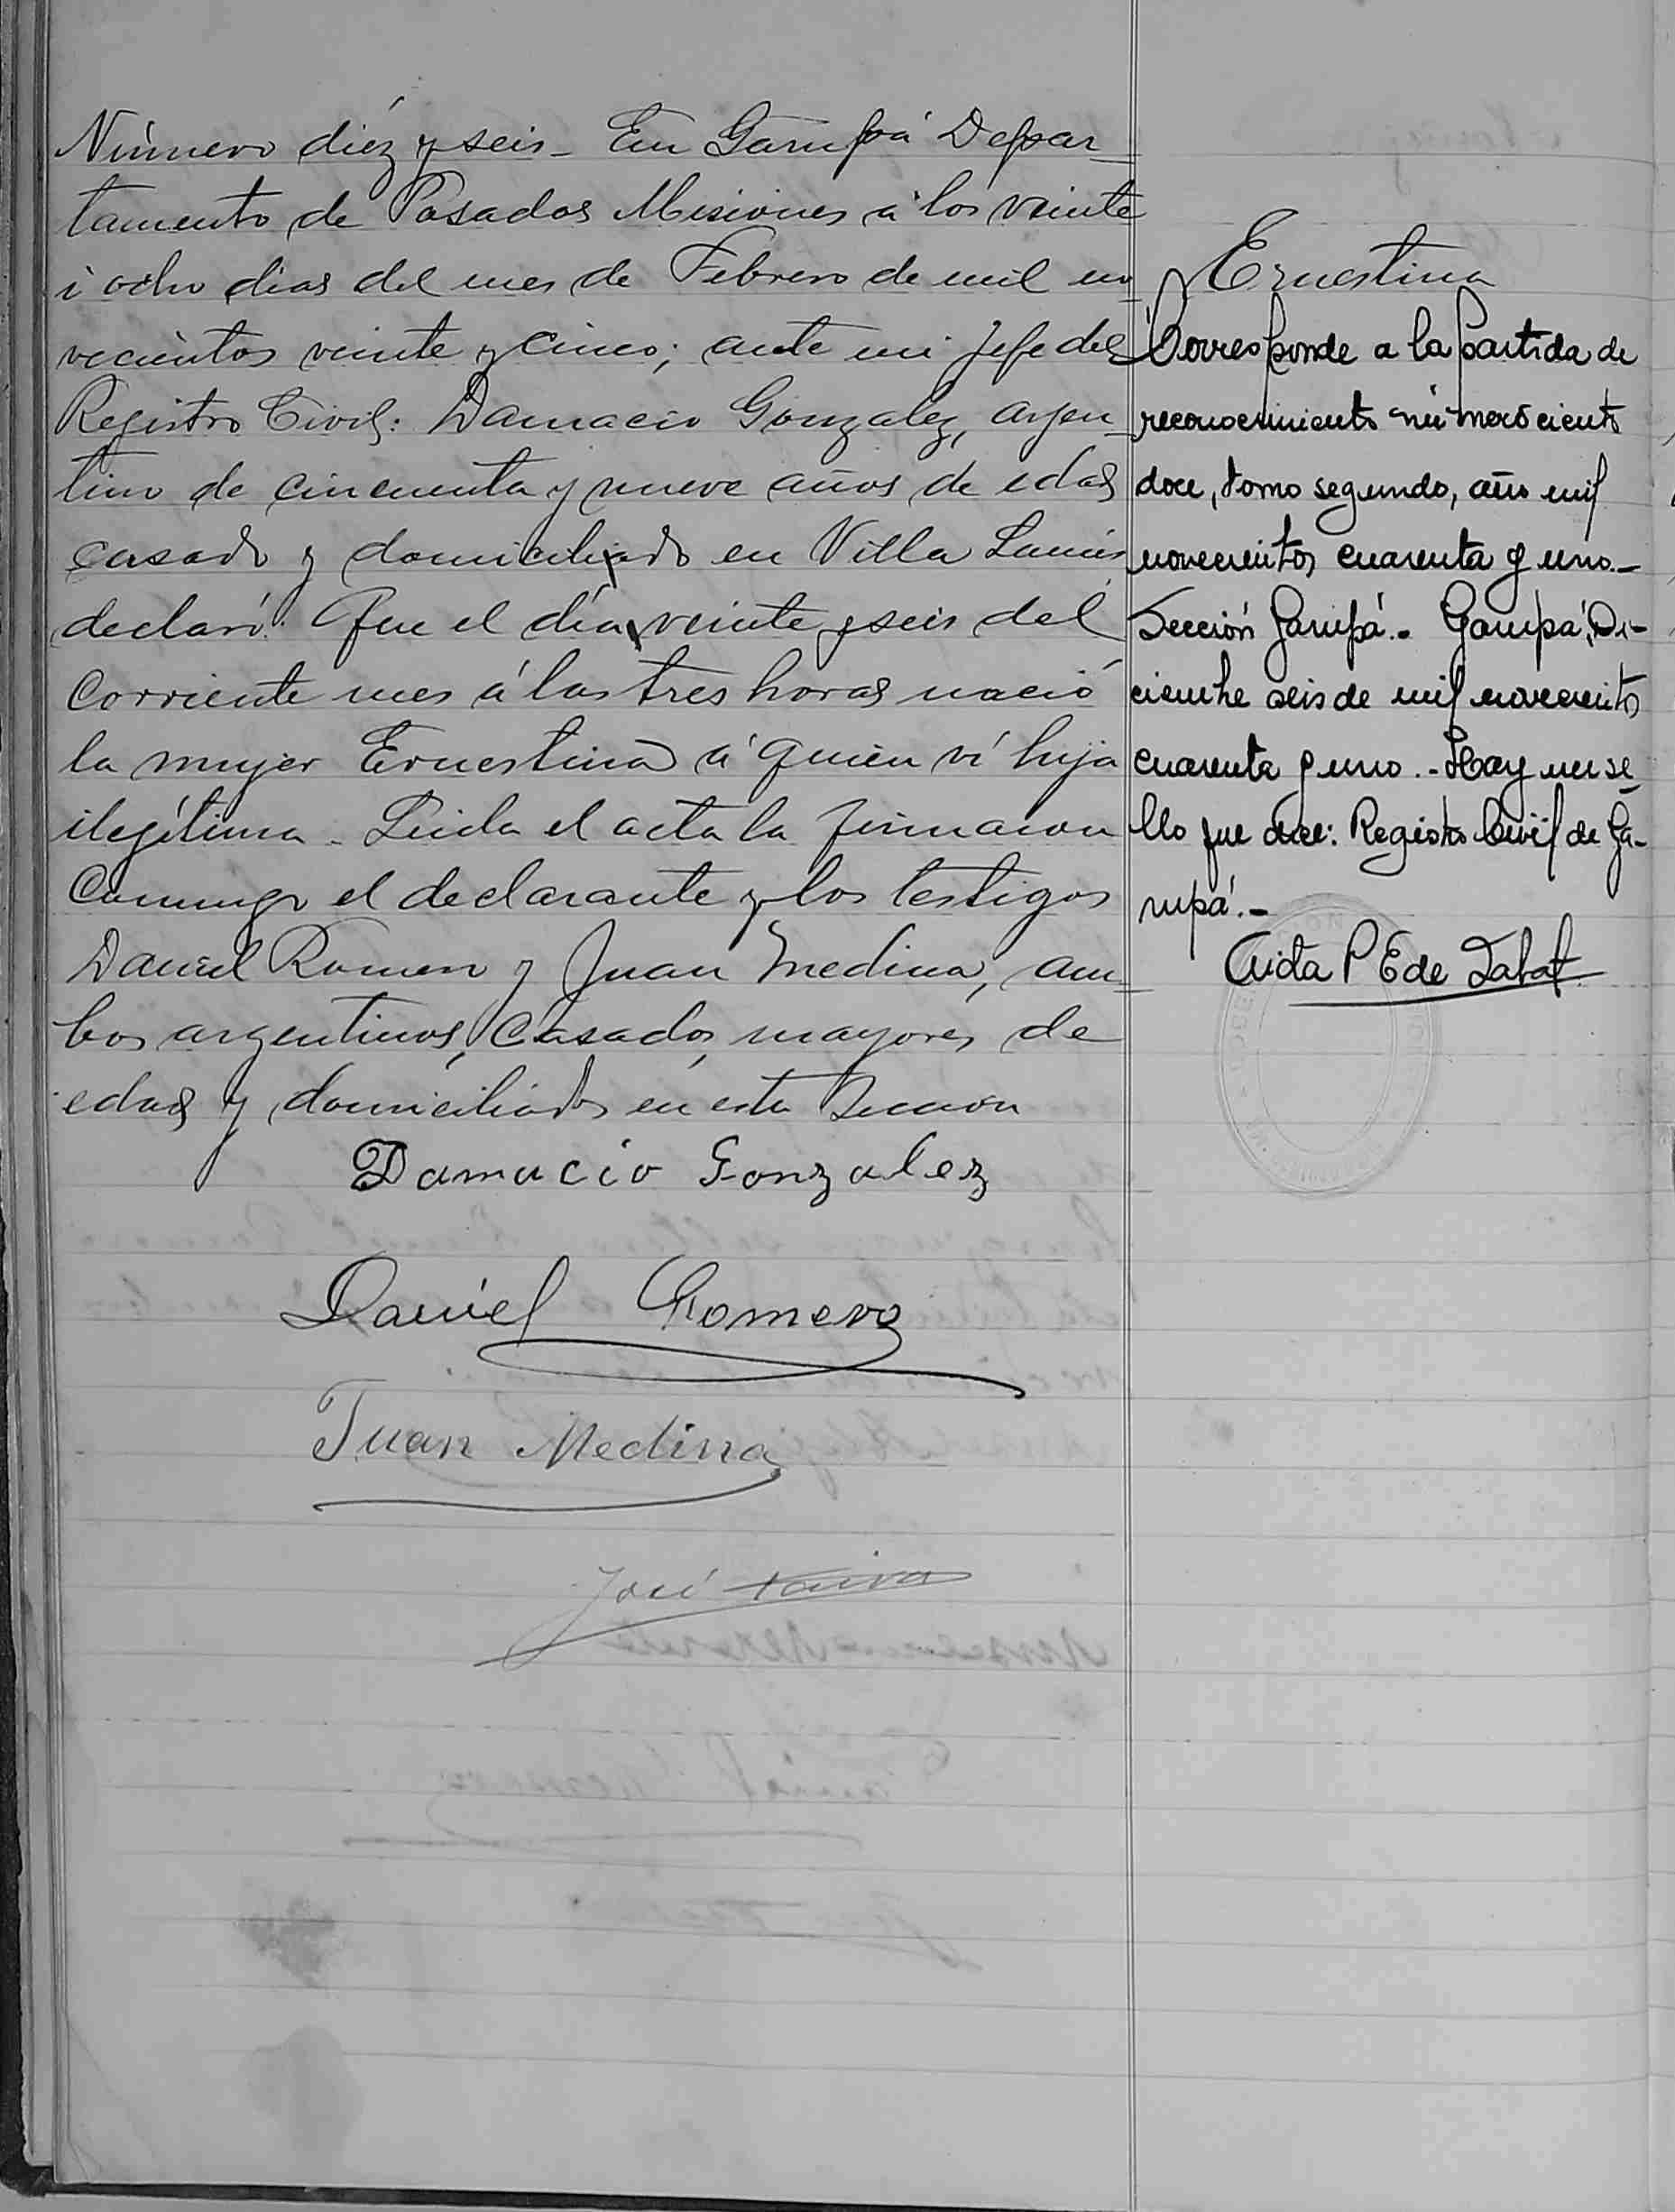 Número diéz y seis - En Garupá Depar-
tamento de Posadas Misiones á los veinte
i ocho dias del mes de Febrero de mil no
vecientos veinte y cinco; ante mi Jefe del
Registro Civil: Damacio Gonzalez, argen-
tino de cincuenta y nueve años de edad
casado y domiciliado en Villa Lanús
declaró: Que el día veinte y seis del
Corriente mes á las tres horas nació
la mujer Ernestina á quien ví hija
ilegítima - Leida el acta la firmaron
Conmigo el declarante y los testigos
Daniel Romero y Juan Medina, am-
bos argentinos, Casados, mayores de
edad y domiciliados en esta Sección
Damacio Gonzalez
Daniel Romero
Juan Medina
José
Ernestina
Corresponde a la partida de
reconocimiento número ciento
doce, tomo segundo, año mil
novecientos cuarenta y uno.-
Sección Garupá.- Garupá, Di-
ciembre seis de mil novecientos
cuarenta y uno.- Hay un se-
llo que dice: Registro Civil de Ga-
rupá.-
P E de